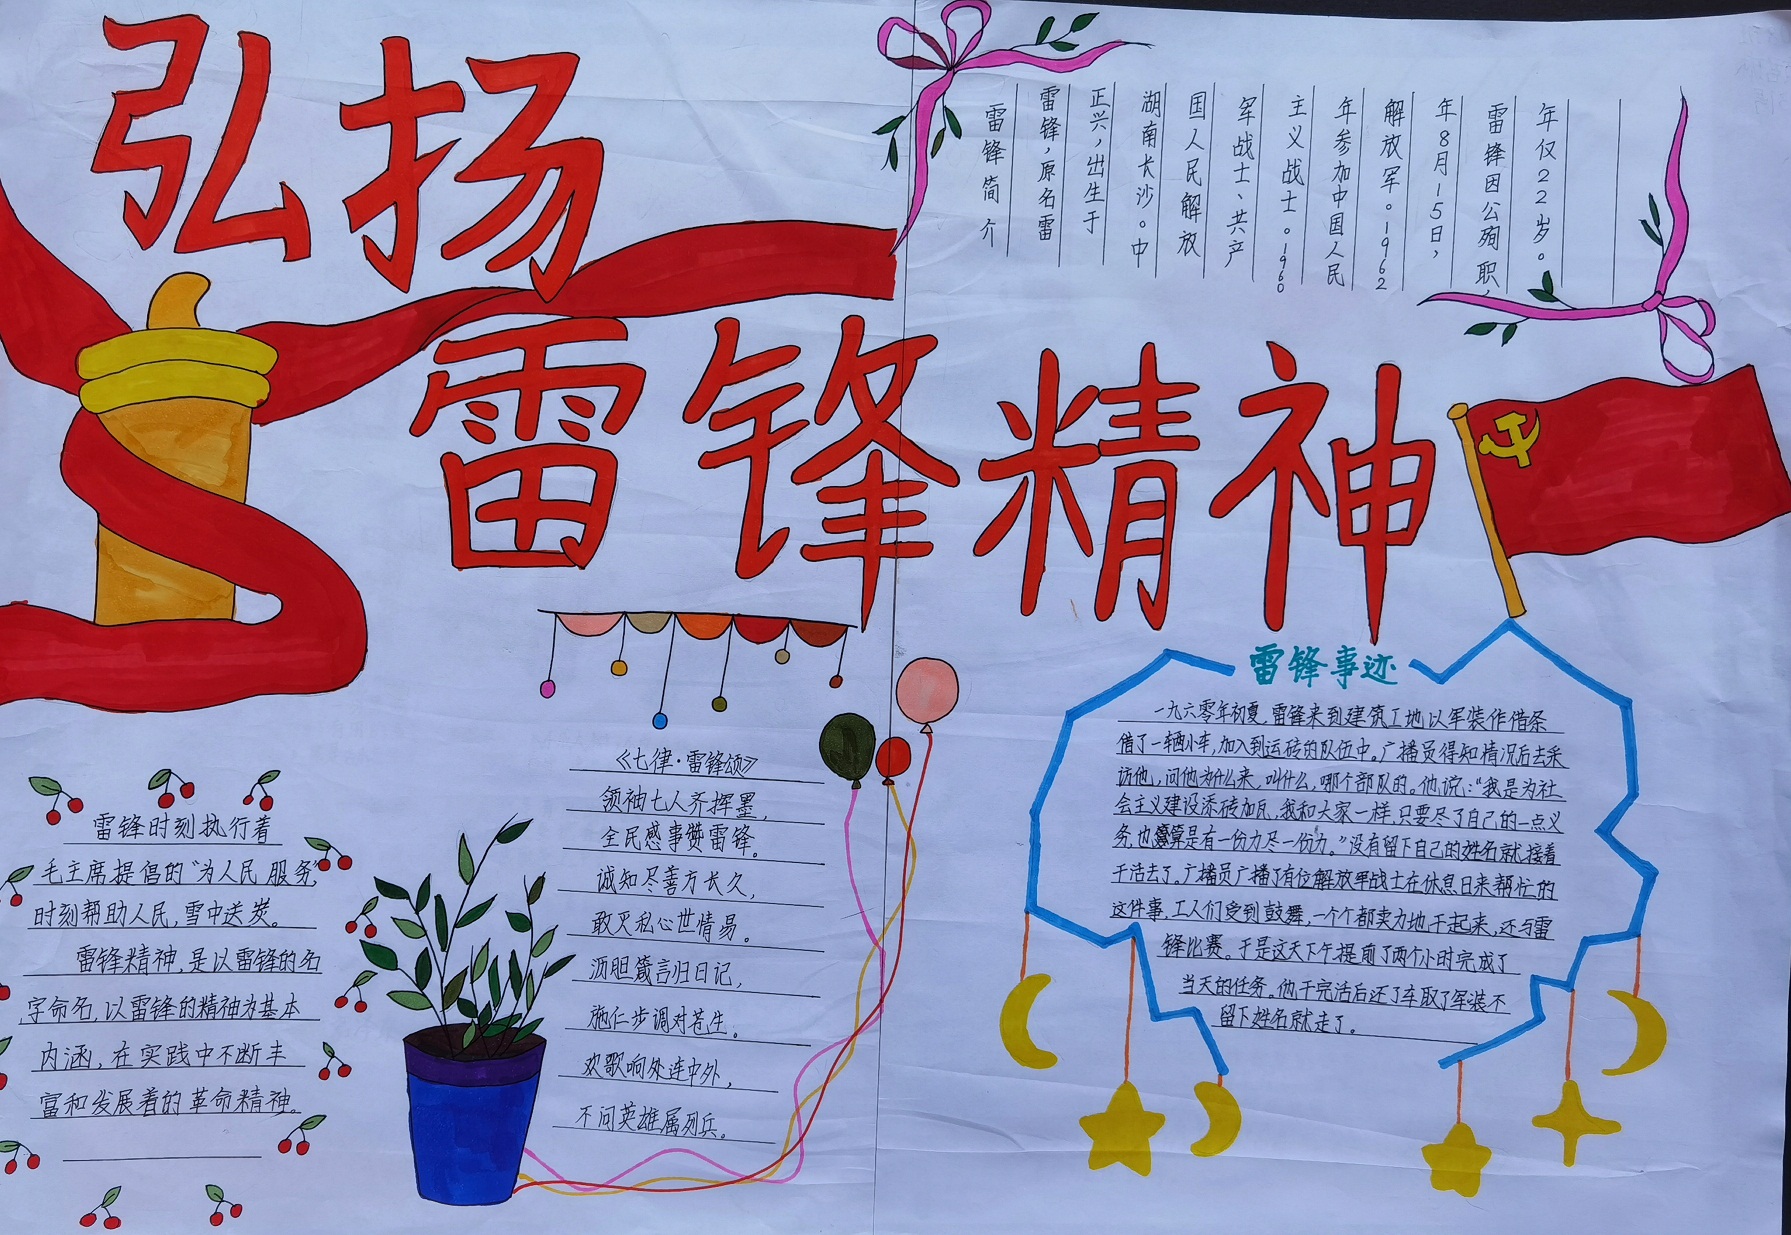 弘扬
雷锋精神
雷锋简介
雷锋，原名雷
正兴，出生于
湖南长沙。中
国人民解放
军战士、共产
主义战士。1960
年参加中国人民
解放军。1962
年8月15日，
雷锋因公殉职，
年仅22岁。
雷锋时刻执行着
毛主席提倡的“为人民服务”，
时刻帮助人民，雪中送炭。
雷锋精神，是以雷锋的名
字命名，以雷锋的精神为基本
内涵，在实践中不断丰
富和发展着的革命精神。
《七律·雷锋颂》
领袖七人齐挥墨，
全民感事赞雷锋。
诚知尽善方长久，
敢灭私心世情易。
沥胆箴言归日记，
施仁步调对苍生。
欢歌响处连中外，
不问英雄属列兵。
雷锋事迹
一九六零年初夏，雷锋来到建筑工地以军装作借条
借了一辆小车，加入到运砖的队伍中。广播员得知情况后去采
访他，问他为什么来，叫什么，哪个部队的。他说：“我是为社
会主义建设添砖加瓦，我和大家一样，只要尽了自己的一点义
务，也算是有一份力尽一份力。”没有留下自己的姓名就接着
干活去了。广播员广播了有位解放军战士在休息日来帮忙的
这件事，工人们受到鼓舞，一个个都卖力地干起来，还与雷
锋比赛。于是这天下午提前了两个小时完成了
当天的任务。他干完活后还了车取了军装不
留下姓名就走了。